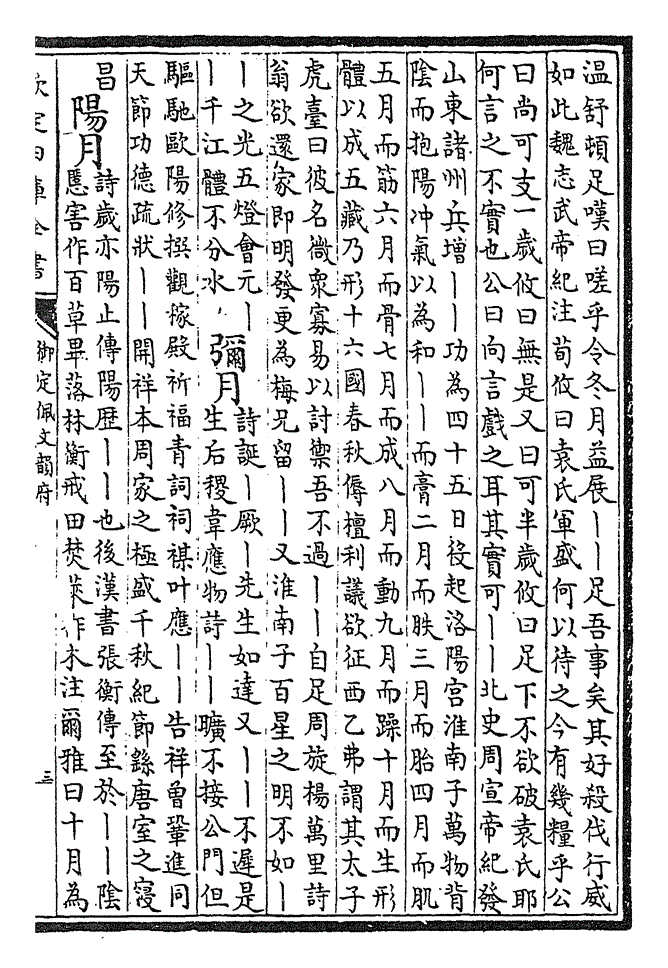 温舒頓足嘆曰嗟乎令冬月益展〡〡足吾事矣其好殺伐行威
如此魏志武帝紀注荀攸曰袁氏軍盛何以待之今有幾糧乎公
曰尚可支一歲攸曰無是又曰可半歲攸曰足下不欲破袁氏耶
何言之不實也公曰向言戲之耳其實可〡〡北史周宣帝紀發
山東諸州兵增〡〡功為四十五日役起洛陽宮淮南子萬物背
陰而抱陽冲氣以為和〡〡而膏二月而胅三月而胎四月而肌
五月而筋六月而骨七月而成八月而動九月而躁十月而生形
體以成五藏乃形十六國春秋傉檀利議欲征西乙弗謂其太子
虎臺曰彼名微衆寡易以討禦吾不過〡〡自足周旋楊萬里詩
翁欲還家即明發更為梅兄留〡〡又淮南子百星之明不如〡
〡之光五燈會元〡
〡千江體不分水
彌月
詩誕〡厥〡先生如達又〡〡不遲是
生后稷韋應物詩〡〡曠不接公門但
驅馳歐陽修撰觀稼殿祈福青詞祠禖叶應〡〡告祥曾鞏進同
天節功德疏狀〡〡開祥本周家之極盛千秋紀節繇唐室之寖
昌
陽月
詩歲亦陽止傳陽歴〡〡也後漢書張衡傳至於〡〡陰
慝害作百草畢落林衡戒田焚萊作木注爾雅曰十月為
欽定四庫全書
御定佩文韻府
三